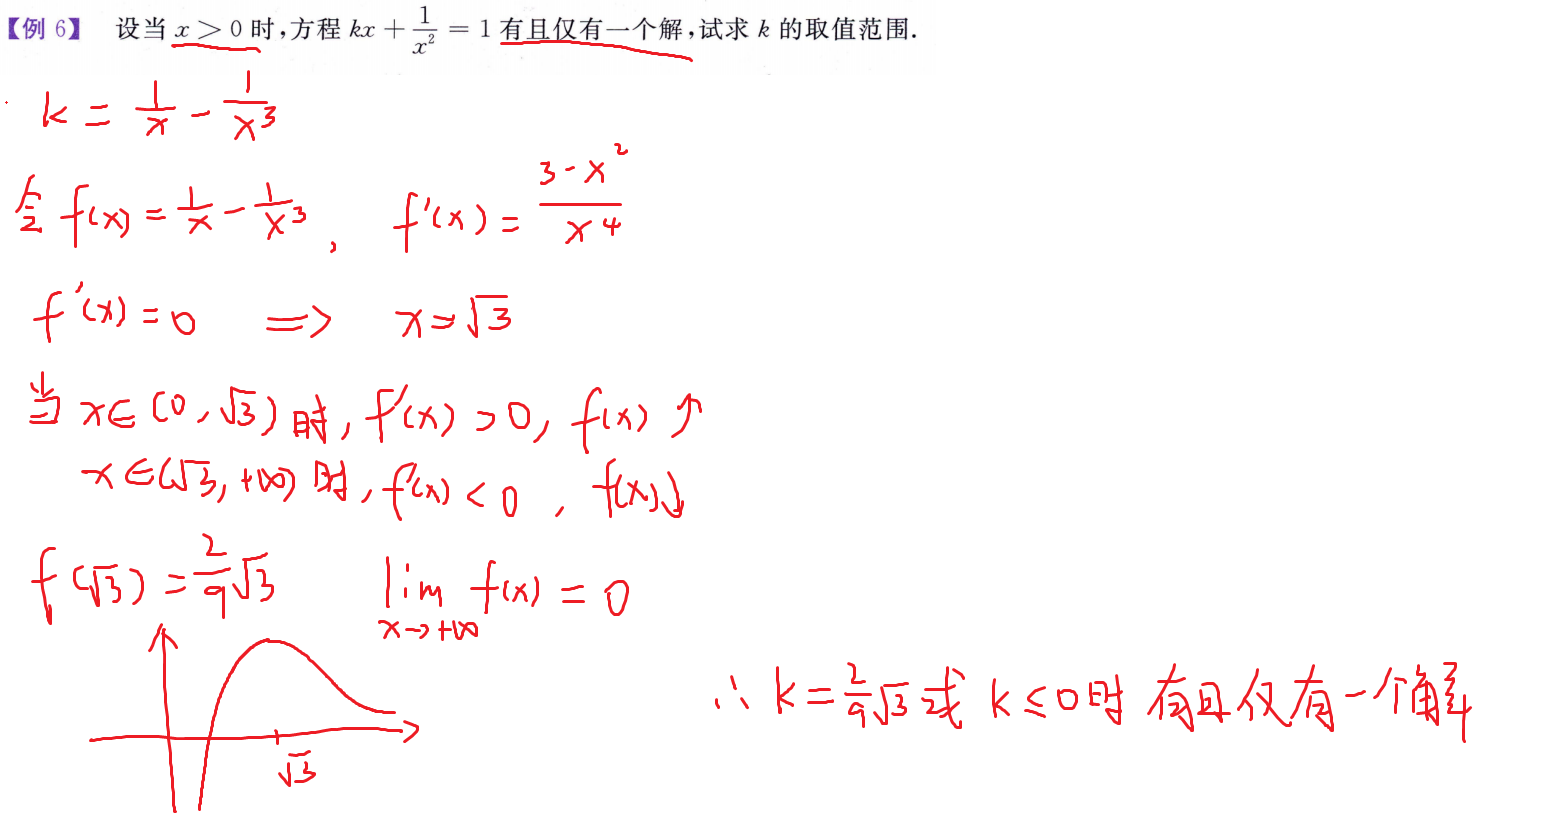 【例 6】 设当 x > 0 时,方程 kx + 1/x² = 1 有且仅有一个解,试求 k 的取值范围.
k = 1/x - 1/x³
令 f(x) = 1/x - 1/x³ , f'(x) = (3-x²)/x⁴
f'(x) = 0 => x = √3
当 x∈(0,√3) 时, f'(x) > 0, f(x) ↑
x∈(√3,+∞) 时, f'(x) < 0 , f(x)↓
f(√3) = 2/9 √3 lim x→+∞ f(x) = 0
∴ k = 2/9 √3 或 k ≤ 0 时 有且仅有一个解
√3